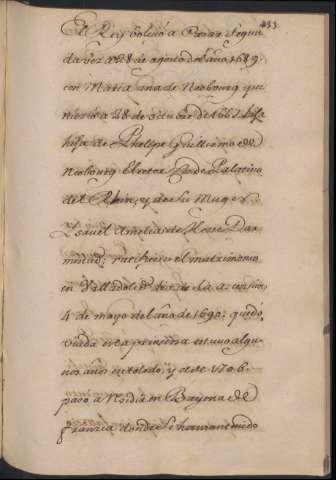 433.
El Rey bolvió a casar segun
da vez a 28 de agosto del año 1689.
con Mariana de Neobourg que
nació a 28 de octubre de 1667. hija
hija de Phelipe Guillermo de
Neobourg Elector Conde Palatino
del Rhin, y de su Muger
Isavel Amelia de Hesse Dar
mestad; ratificose el matrimonio
en Valladolid dia de la Ascension
4 de mayo del año de 1690: quedó
viuda esta princesa estuvo algu
nos años en toledo, y el de 1706.
paso a residir en Bayona de
francia donde se ha mantenido